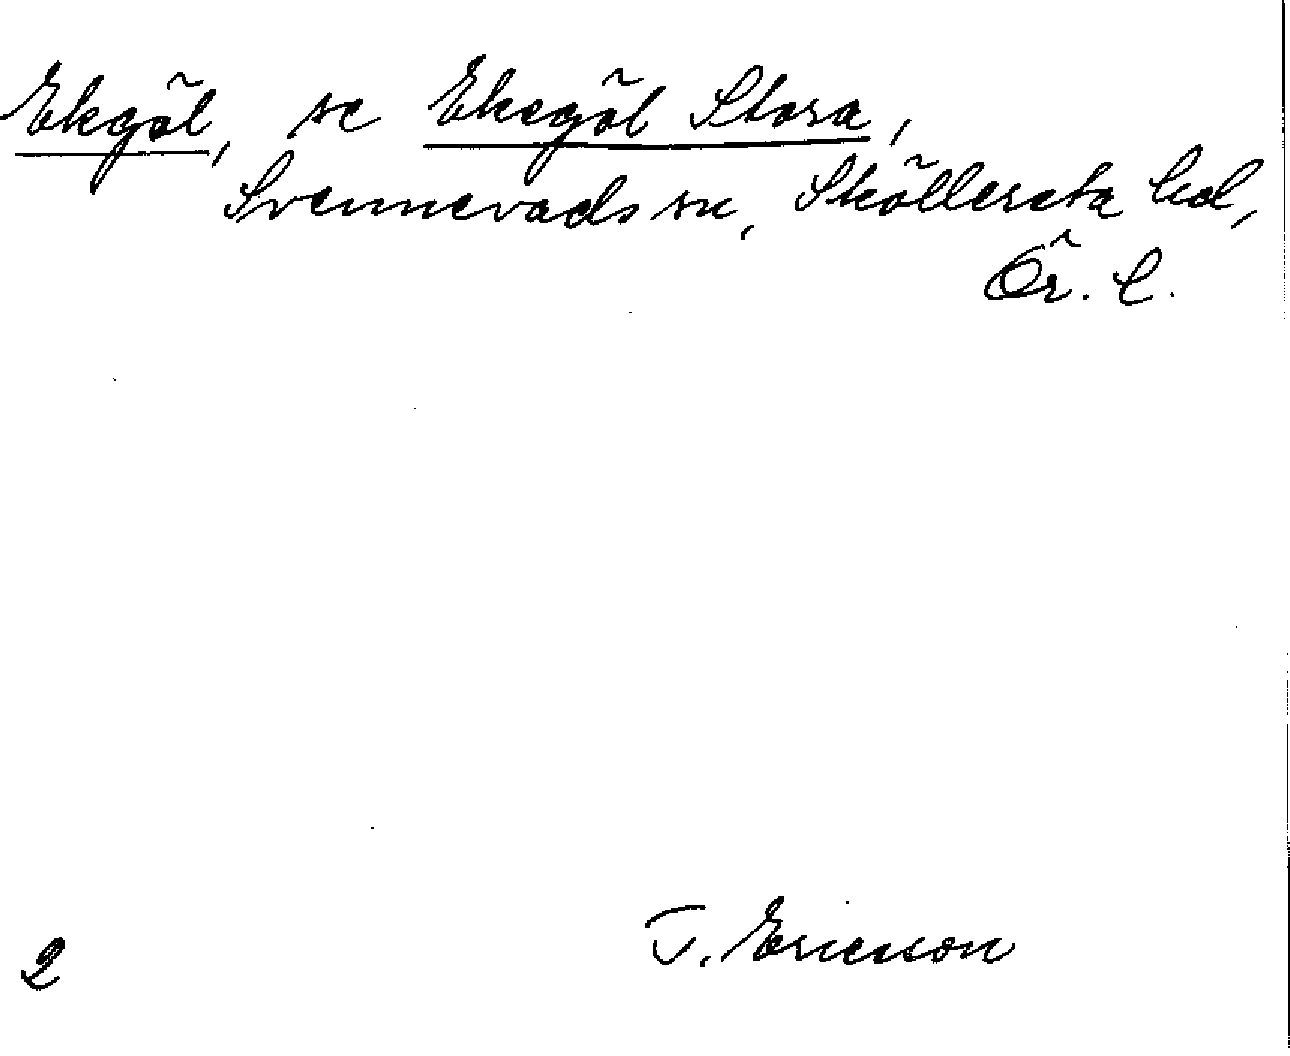 Ekgöl, se Ekegöl Stora,
Svennevads sn, Sköllersta hd,
Ör. l.
T. Ericsson
2